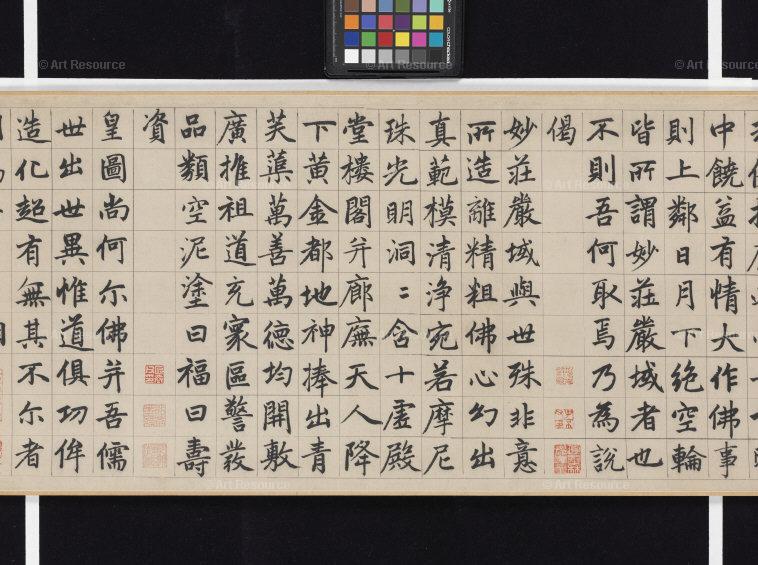 © Art Resource
© Art Resource
中饒益有情大作佛事
則上鄰日月下絕空輪
皆所謂妙莊嚴域者也
不則吾何取焉乃為說
偈
妙莊嚴域與世殊非意
所造離精粗佛心幻出
真範模清淨宛若摩尼
珠光明洞〻含十虛殿
堂樓閣并廊廡天人降
下黃金都地神捧出青
芙蕖萬善萬德均開敷
廣推祖道充寰區警發
品類空泥塗曰福曰壽
資
皇圖尚何尒佛并吾儒
世出世異惟道俱功侔
造化超有無其不尒者
© Art Resource
© Art Resource